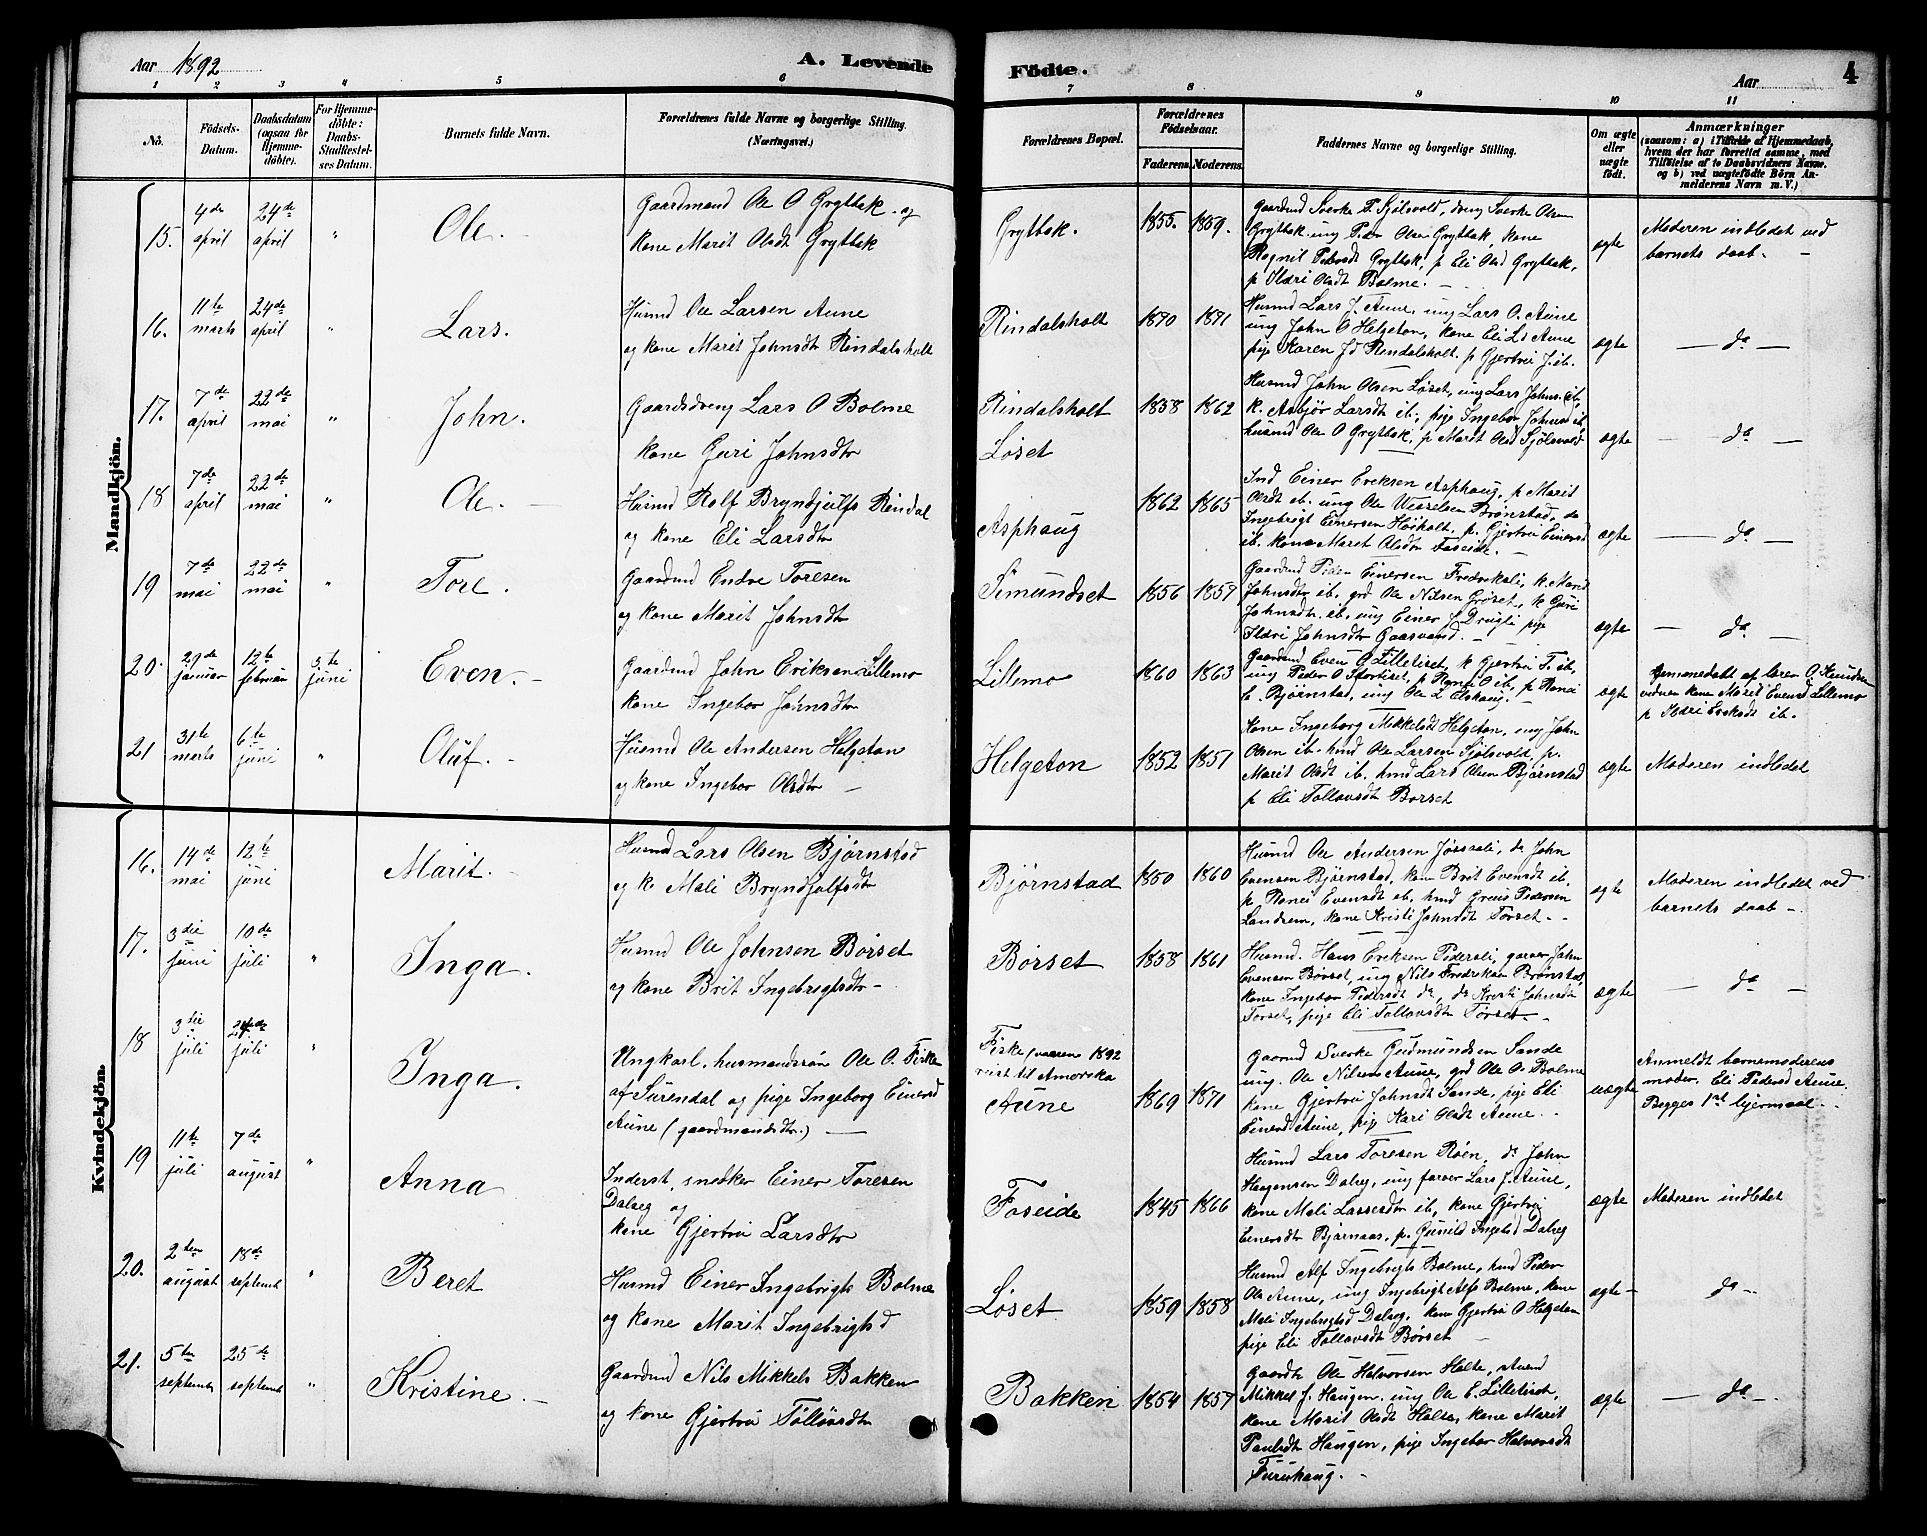 Aar 1892
A. Levende Födte.
Aar
4
1 2 3 4 5 6 7 8 9 10 11
No.
Födsels-Datum.
Daabsdatum (ogsaa for Hjemmedöbte).
For Hjemmedöbte: Daabs-Stadfæstelses Datum.
Barnets fulde Navn.
Forældrenes fulde Navne og borgerlige Stilling. (Næringsvei.)
Forældrenes Bopæl.
Forældrenes Födselsaar.
Faderens. Moderens.
Faddernes Navne og borgerlige Stilling.
Om ægte eller uægte födt.
Anmærkninger
(saasom: a) i Tilfælde af Hjemmedaab,
hvem der har forrettet samme, med
Tilföielse af to Daabsvidners Navne.
og b) ved uægtefödte Börn An-
melderens Navn m. V.)
Mandkjön.
15. 4de april 24de april " Ole.
Gaardmand Ole O Grytbak og
kone Marit Olsdt Grytbak
Grytbak. 1855. 1859.
Gaardmd Sverke P. Sjølsvold, dreng Sverke Olsen
Grytbak ung Peder Olsen Grytbak, kone
Ragnil Pedersdt Grytbak, p Eli Olsd Grytbak,
p Ildri Olsdt Bolme.
ægte
Moderen indledet ved
barnets daab.
16. 11te marts 24de april " Lars.
Husmd Ole Larsen Aune
og kone Marit Johnsdtr Rindalsholt
Rindalsholt 1870 1871
Husmd Lars J. Aune, ung Lars O. Aune
ung John O Helgeton, kone Eli Ld Aune
pige Karen Jd Rindalsholt. p Gjertrú J. ib.
ægte
do
17. 7de april 22de mai " John.
Gaardsdreng Lars O Bolme
kone Guri Johnsdtr
Rindalsholt
Løset
1858 1862
Husmd John Olsen Løset, ung Lars Johns. ib,
k. Asbjør Larsdt ib., pige Ingebor Johnsd ib,
husmd Ole O Grytbak, p Marit Olsd Sjølsvold
ægte
do
18 7de april 22de mai " Ole.
Husmd Rolf Bryndjulfs Rindal
og kone Eli Larsdtr
Asphaug 1862 1865
Ind Einer Eriksen Asphaug, p Marit
Olsdt ib. ung Ole Wesselsen Brønstad, do
Ingebrigt Einersen Høiholt, p. Gjertrú Einersd
ib. kone Maret Olsdtr Foseide.
ægte
do
19 7de mai 22de mai " Tore.
Gaardmd Endre Toresen
og kone Marit Johnsdtr
Simundset 1856 1857
Gaardmd Peder Einersen Fredrekali, k. Marit
Johnsdtr ib, grd Ole Nilsen Grøset, k Guri
Johnsdt. ib, ung Einer J Drugli pige
Ildri Johnsdtr Gaasvand.
ægte
do
20. 29de januar 12te februar 5te juni Even.
Gaardmd John Eriksen Lillemo
kone Ingebor Johnsdtr
Lillemo 1860 1863
Gaardmd Even O Lilletiset, k Gjertrú T. ib,
ung Peder O Stortiset, p Ranei O ib, p Ranei
E. Bjørnstad, ung Ole L Elshaug.
ægte
Hjemmedøbt af lærer O. Knudsen
vidner kone Marit Evensd Lillemo
p Ildri Eriksdt ib.
21 31te marts 6te juni " Oluf.
Husmd Ole Andersen Helgeton
og kone Ingebor Olsdtr
Helgeton 1852 1851
Kone Ingeborg Mikkelsdt Helgeton, ung John
Olsen ib. hmd Ole Larsen Sjølsvold, p.
Marit Olsdt ib. hmd Lars Olsen Bjørnstad
p Eli Tollavsdt Børset
ægte
Moderen indledet
Kvindekjön.
16. 14de mai 12te juni Marit.
Husmd Lars Olsen Bjørnstad
og k. Mali Bryndjulfsdt
Bjørnstad 1850 1860
Husmd Ole Andersen Jøssali, do John
Evensen Bjørnstad, kone Brit Evensdt ib.
p. Ranei Evensdt ib. hmd Greus Pedersen
Landsem, kone Kristi Johnsdt Torset.
ægte
Moderen indledet ved
barnets daab
17. 3die juni 10de juli " Inga.
Husmd Ole Johnsen Børset
og kone Brit Ingebrigtsdtr
Børset 1858 1861
Husmd. Hans Eriksen Pedersli, garver John
Evensen Børset, ung Nils Fredriksen Brønstad,
kone Ingebor Pedersdt do, do Kristi Johnsdt
Torset, pige Eli Tollavsdt Torset.
ægte
do
18 3die juli 24de juli " Inga.
Ungkarl, husmandssøn Ole O. Fiske
af Surendal og pige Ingeborg Einersd
Aune (gaardmandsdtr.)
Fiske (vaaren 1892
reist til Amerika
Aune
1869 1871
Gaardmd Sverke Gudmundsen Sande
ung. Ole Nilsen Aune, grd Ole O. Bolme
kone Gjertrú Johnsdt Sande, pige Eli
Einersd Aune, pige Kari Olsdt Aune.
uægte
Anmeldt barnemoderens
moder. Eli Pedersd Aune,
Begges 1ste leiermaal
19 11te juli 7de august " Anna
Inderst, snedker Einer Toresen
Dalseg og
kone Gjertrú Larsdtr
Foseide 1845 1866
Husmd Lars Toresen Røen, do John
Haagensen Dalseg, ung farver Lars J. Aune,
kone Mali Lassesdt ib, kone Gjertrú
Einersdt Bjørnaas, p. Gunild Ingebsd Dalseg
ægte
Moderen indledet
20. 2den august 18de septembr " Beret
Husmd Einer Ingebrigts Bolme
og kone Marit Ingebrigtsd
Løset 1859 1858
Husmd Alf Ingebrigts Bolme, hmd Peder
Ols Aune, ung Ingebrigt Alfs Bolme, kone
Mali Ingebrigtsd Dalseg, kone Gjertrú O Helgeton
pige Eli Tollavsdt Børset
ægte
do
21. 5te septembr 25de septembr " Kristine.
Gaardmd Nils Mikkels Bakken
og kone Gjertrú Tollevsdtr
Bakken 1854 1857
Gaardb Ole Halvorsen Halte,
Mikkel J. Haugen, ung Ole E. Lilletiset,
kone Marit Olsdt Halte, kone Marit
Paulsdt Haugen, pige Ingebor Halvorsdt
Furuhaug.
ægte
do